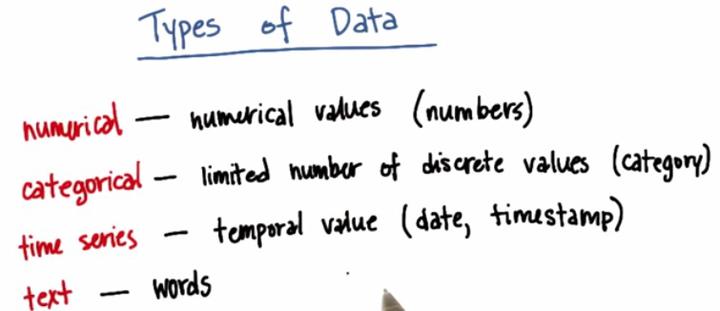 Types of Data
numerical — numerical values (numbers)
categorical — limited number of discrete values (category)
time series — temporal value (date, timestamp)
text — words